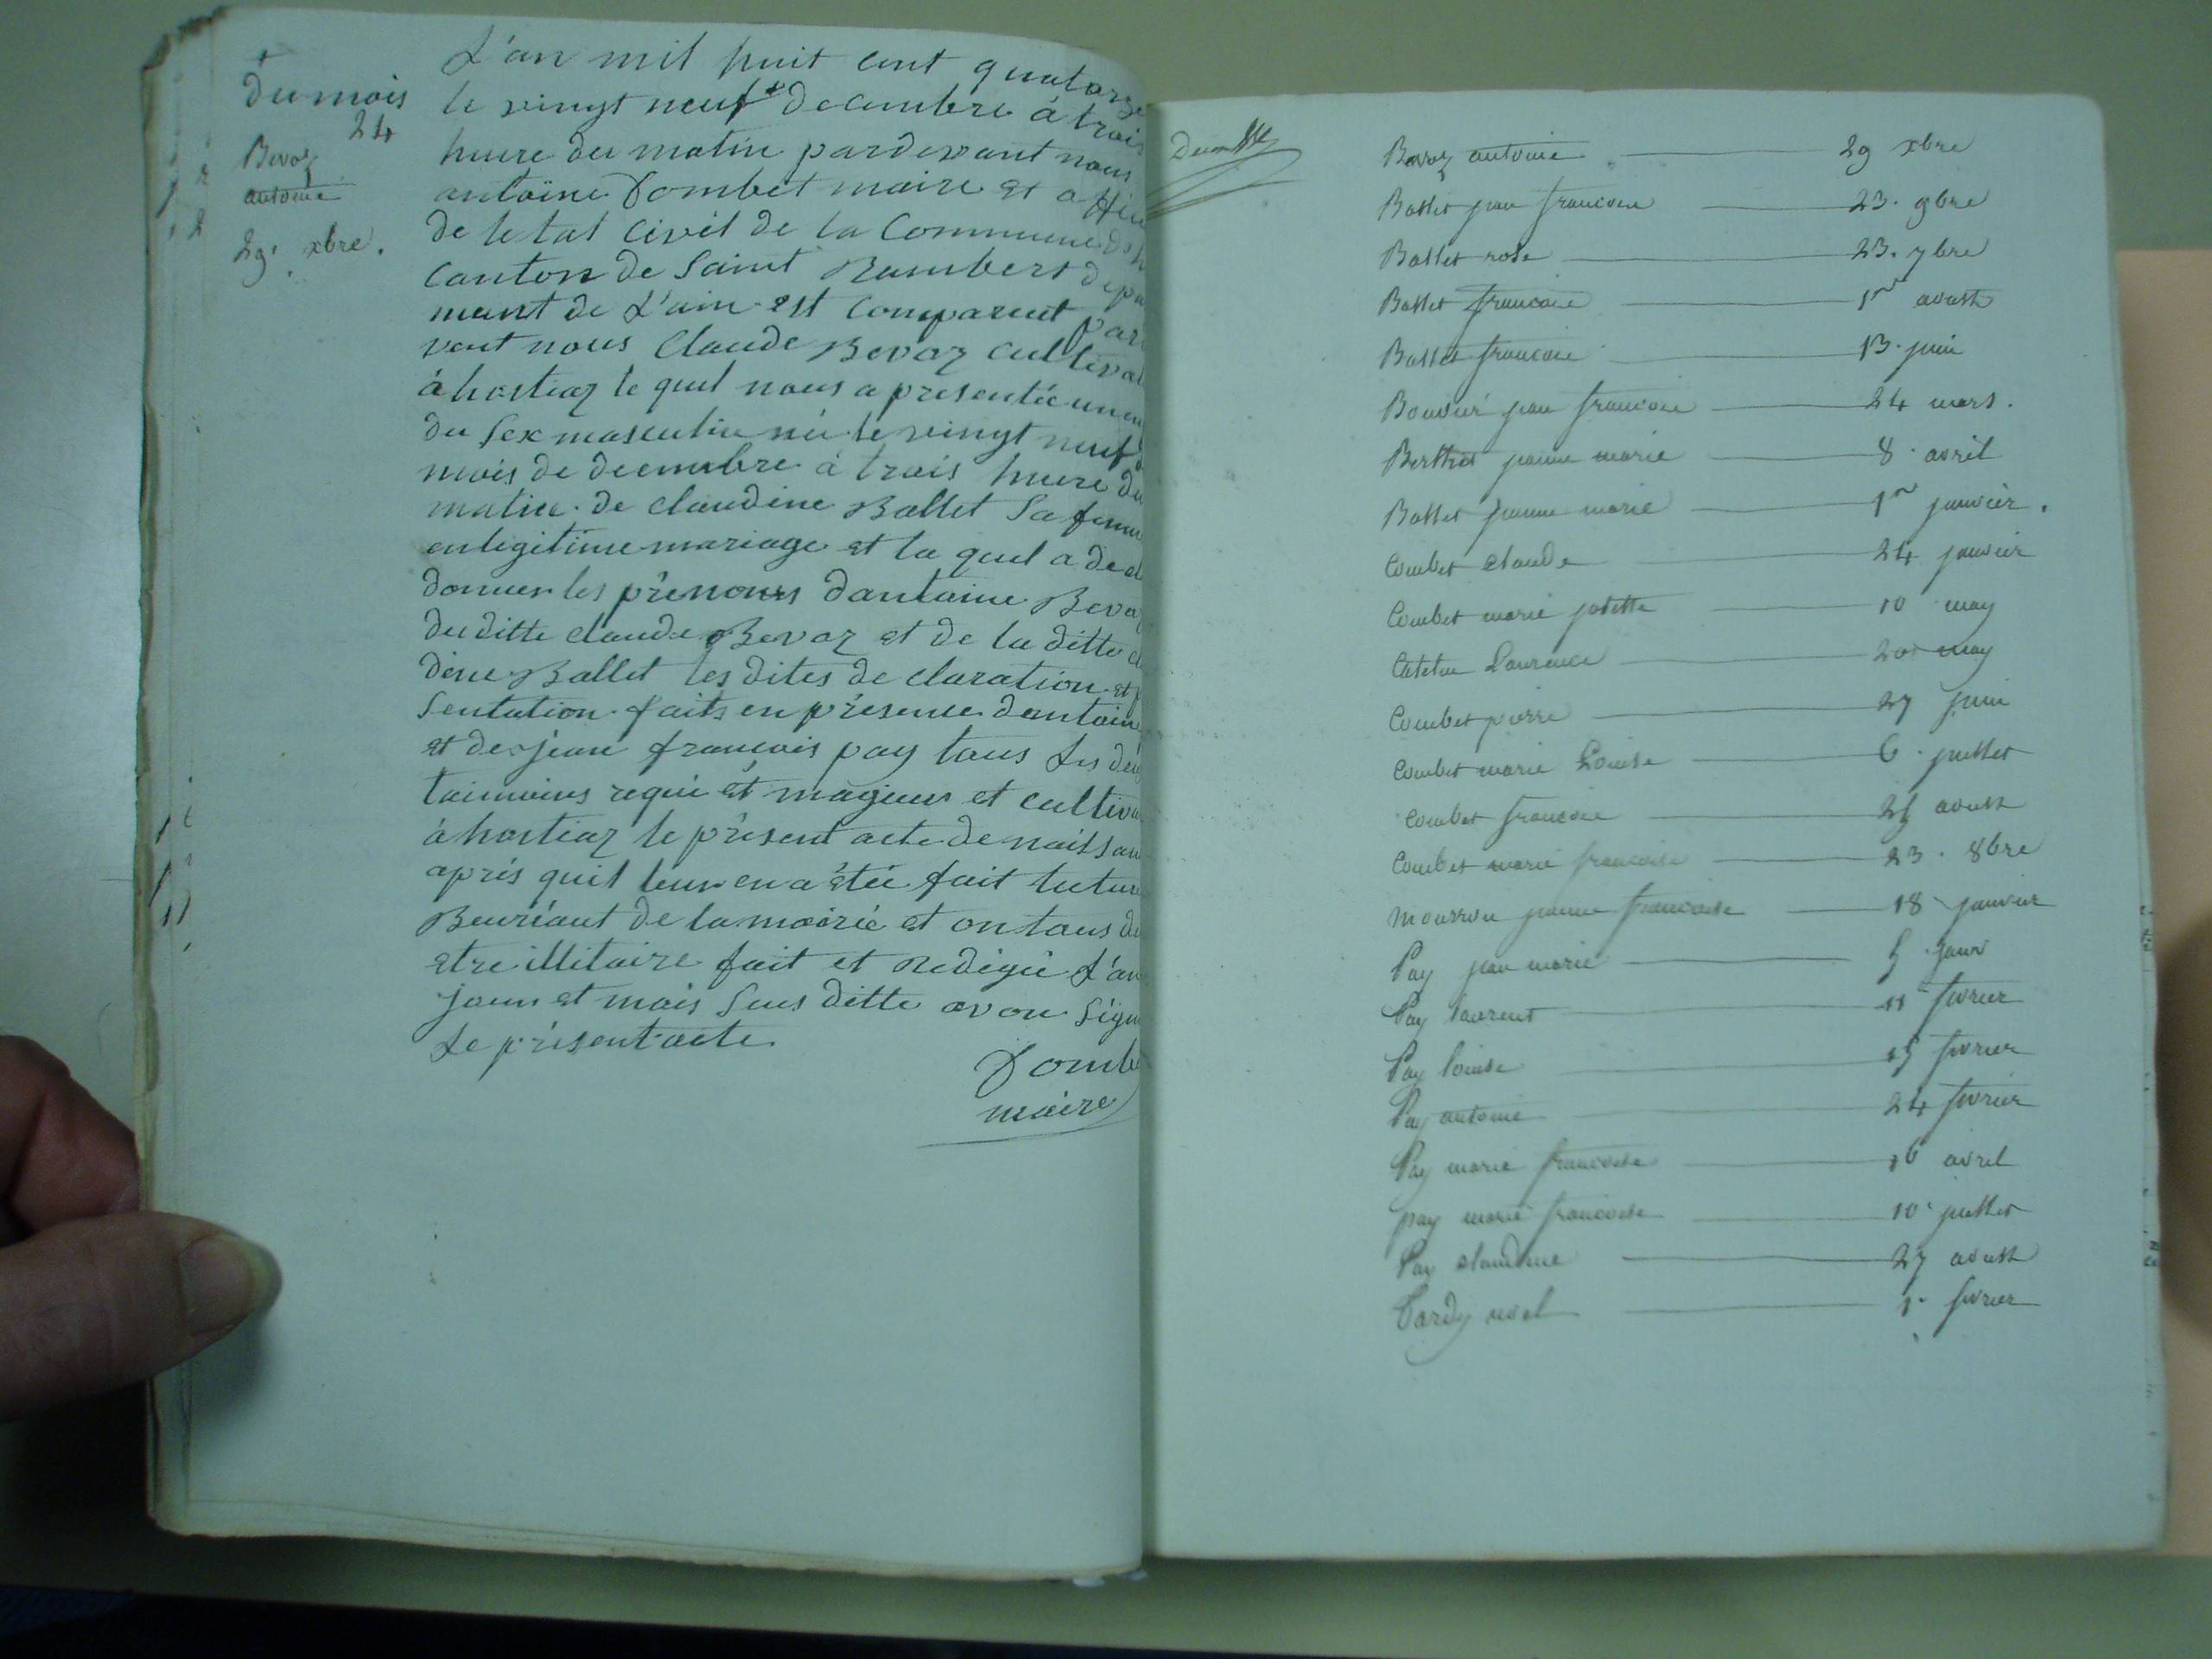 du mois
24
Bevoz
antoine
29. xbre.
L'an mil huit cent quatorze
le vingt neuf decembre à trois
heure du matin pardevant nous
antoine Combet maire et offici
de letat civil de la Commune d'h
Canton de Saint Rambert depa
ment de L'ain est comparut par
vent nous Claude Bevoz cultivat
à hostiaz le quel nous a presentée un en
du Sex masculin né le vingt neuf
mois de decembre à trois heure du
matin de claudine Ballet Sa femme
en legitime mariage et la quel a decl
donner les prénoms dantoine Bevoz
du ditte claude Bevoz et de la ditte cl
dine Ballet les dites de claration et p
Sentation faits en présence dantoine
et de jean françois pay tous Les deux
taimoins requi et majeur et cultiva
à hostiaz le présent acte de naissan
aprés quil leur en a étée fait lecture
Beuriaut de la mairie et on tous de
etre illitaire fait et redigée L'an
jour et mois Sus ditte avon Signe
Le présent acte.
Combe
maire
Bevoz antoine 29 xbre
Ballet jean francois 23. 9bre
Ballet rose 23. 7bre
Ballet francoise 1er aoust
Ballet francoise 13 juin
Bouvier jean francois 24 mars.
Berthet jeanne marie 8 avril
Ballet jeanne marie 1er janvier.
Combet claude 24 janvier
Combet marie josette 10 may
Laurence 20 may
Combet pierre 27 juin
Combet marie Louise 6 juillet
Combet francoise aoust
Combet marie francoise 23. 8bre
jeanne francoise 18 janvier
Pay jean marie 5 janv
Pay laurent 11 fevrier
Pay louise 15 fevrier
Pay antoine 24 fevrier
Pay marie francoise 16 avril
pay marie francoise 10 juillet
Pay claudine 27 aoust
Tardy noel 1. fevrier